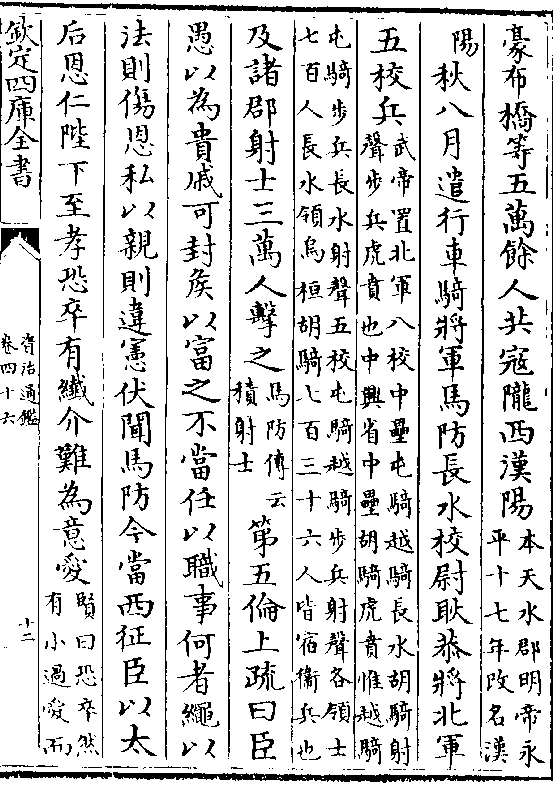 豪布橋等五萬餘人共冦隴西漢陽本天水郡明帝永平十七年改名漢
陽秋八月遣行車騎將軍馬防長水校尉耿恭將北軍
五校兵武帝置北軍八校中壘屯騎越騎長水胡騎射聲步兵虎賁也中興省中壘胡騎虎賁惟越騎
屯騎步兵長水射聲五校屯騎越騎步兵射聲各領士七百人長水領烏桓胡騎七百三十六人皆宿衞兵也
及諸郡射士三萬人擊之馬防傳云積射士第五倫上疏曰臣
愚以為貴戚可封侯以富之不當任以職事何者繩以
法則傷恩私以親則違憲伏聞馬防今當西征臣以太
后恩仁陛下至孝恐卒有纎介難為意愛賢曰恐卒然有小過愛而
欽定四庫全書
資治通鑑
卷四十六
十二